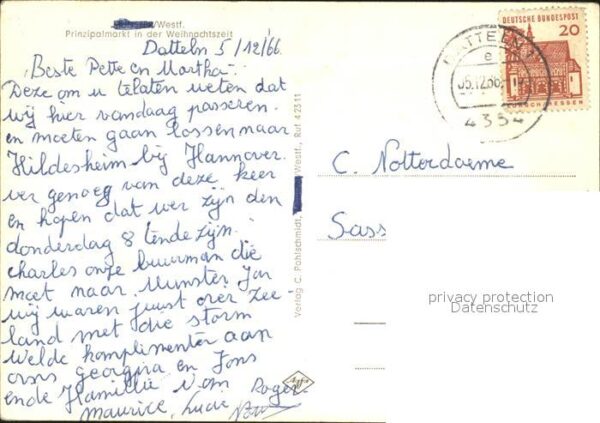 /Westf.
Prinzipalmarkt in der Weihnachtszeit
Datteln 5/12/66
Beste Pette en Martha
Deze om u te laten weten dat
wij hier vandaag passeren
en moeten gaan lossen naar
Hildesheim bij Hannover.
ver genoeg van deze keer
en hopen dat wer zijn den
donderdag 8 tende zijn.
charles onze buurman die
moet naar Munster
wij waren juist over Zee-
land met die storm
Welde komplimenter aan
ons georgina en Fons
ende Familie van Roger
Maurice, Lucie
Verlag C. Pohlschmidt, Westf., Ruf 42311
Agfa
DEUTSCHE BUNDESPOST
20
LORSCH/HESSEN
DATTELN
e
05.12.66
4354
C. Notterdaeme
Sass
privacy protection
Datenschutz